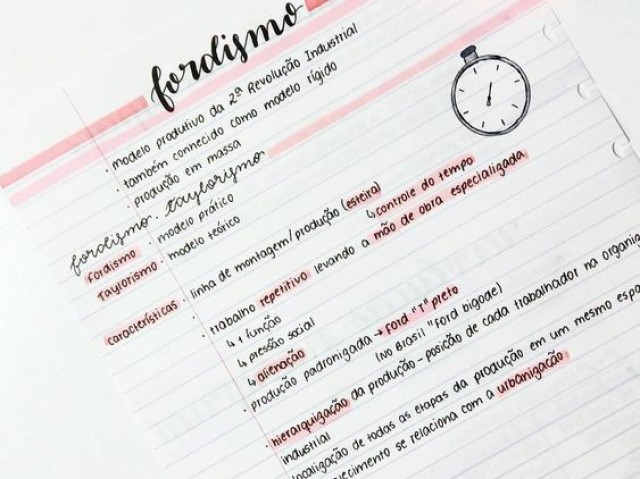 fordismo
· modelo produtivo da 2ª Revolução Industrial
· também conhecido como modelo rígido
· produção em massa
fordismo · taylorismo
Fordismo · modelo prático
Taylorismo · modelo teórico
características · linha de montagem/produção (esteira)
↳ controle do tempo
· trabalho repetitivo levando a mão de obra especializada
↳ 1 função
↳ pressão social
↳ alienação
· produção padronizada → Ford "T" preto
(no Brasil "Ford bigode)
· hierarquização da produção - posição de cada trabalhador na organiz
industrial
localização de todas as etapas da produção em um mesmo espa
se relaciona com a urbanização